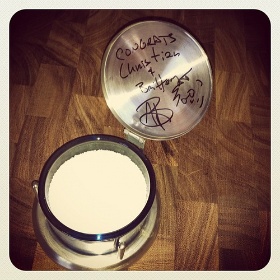 CONGRATS
Christian
+
Brittany
AB